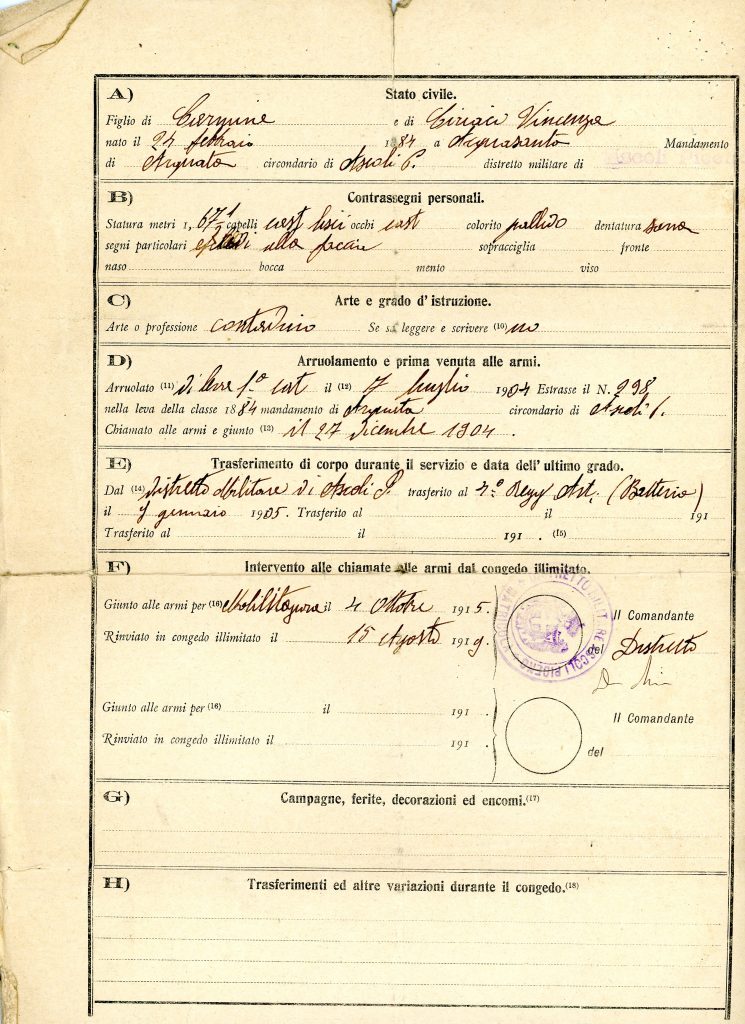 A) Stato civile.
Figlio di Carmine e di Ciriaci Vincenza
nato il 24 febbraio 1884 a Acquasanta Mandamento
di Arquata circondario di Ascoli P. distretto militare di
B) Contrassegni personali.
Statura metri 1, 67 1/2 capelli cast lisci occhi cast colorito pallido dentatura sana
segni particolari alla faccia sopracciglia fronte
naso bocca mento viso
C) Arte e grado d'istruzione.
Arte o professione contadino Se sa leggere e scrivere (10) no
D) Arruolamento e prima venuta alle armi.
Arruolato (11) di leva 1ª cat il (12) 7 luglio 1904 Estrasse il N. 298
nella leva della classe 1884 mandamento di Arquata circondario di Ascoli P.
Chiamato alle armi e giunto (13) il 27 dicembre 1904.
E) Trasferimento di corpo durante il servizio e data dell'ultimo grado.
Dal (14) Distretto Militare di Ascoli P. trasferito al 4º Regg Art. (Batteria)
il 7 gennaio 1905. Trasferito al il 191
Trasferito al il 191 . (15)
F) Intervento alle chiamate alle armi dal congedo illimitato.
Giunto alle armi per (16) Mobilitazione il 4 Ottobre 1915. Il Comandante
Rinviato in congedo illimitato il 15 Agosto 1919. del Distretto
Giunto alle armi per (16) il 191 . Il Comandante
Rinviato in congedo illimitato il 191 . del
G) Campagne, ferite, decorazioni ed encomi.(17)
H) Trasferimenti ed altre variazioni durante il congedo.(18)